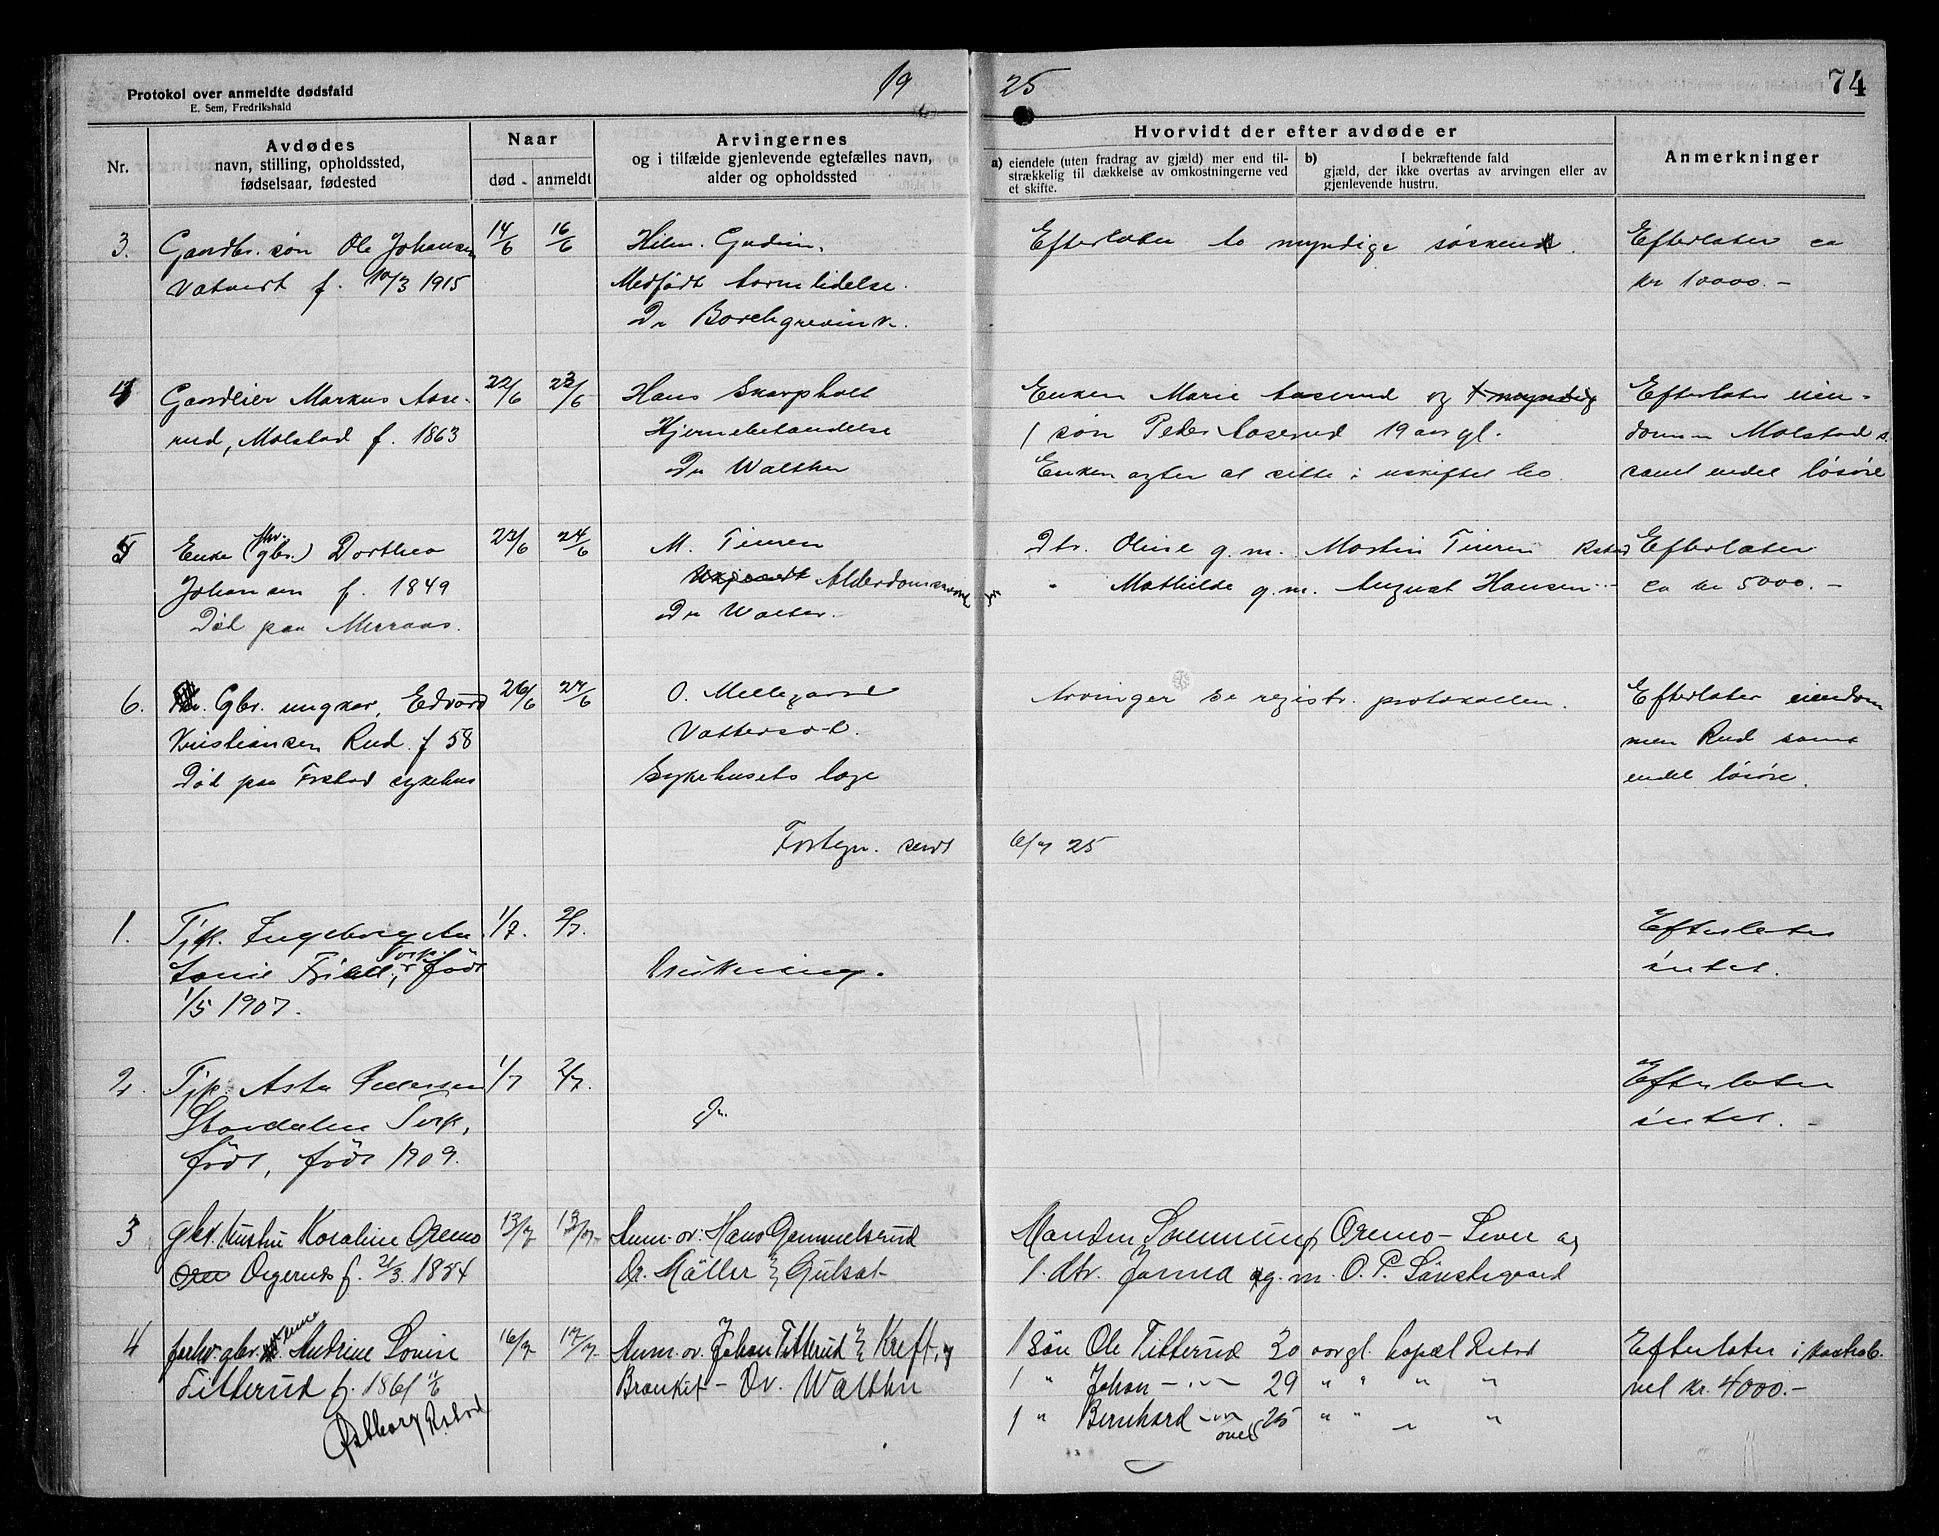 Protokol over anmeldte dødsfald
E. Sem, Fredrikshald
19 25
74
Nr.
Avdødes
navn, stilling, opholdssted,
fødselsaar, fødested
Naar
død
anmeldt
Arvingernes
og i tilfælde gjenlevende egtefælles navn,
alder og opholdssted
Hvorvidt der efter avdøde er
a) eiendele (uten fradrag av gjæld) mer end til-
strækkelig til dækkelse av omkostningerne ved
et skifte.
b) I bekræftende fald
gjæld, der ikke overtas av arvingen eller av
gjenlevende hustru.
Anmerkninger
3. Gaardbr. søn Ole Johansen
Vatvedt f. 10/3 1915
14/6 16/6
Medfødt lidelse.
Dr Borchgrevink.
Efterlater to myndige søsken.
Efterlater ca
kr 10000.-
4 Gaardeier Markus Aase-
rud, Molstad f. 1863
22/6 23/6
Hans Skarpholt
Dr Walther
Enken Marie Aaserud og
1 søn Peder Aaserud 19 aar gl.
Enken agter at sitte i uskiftet bo.
Efterlater eien-
dommen Molstad s.
samt endel løsøre
5 Enke (fhv. gbr.) Dorthea
Johansen f. 1849
Død paa Merraas.
23/6 24/6
M. Tieren
Dr Walter.
Dtr. Oline g.m. Martin Tieren Rakstad
" Mathilde g.m. August Hansen
Efterlater
ca kr 5000.-
6. Gbr. ungkar, Edvard
Kristiansen Rud. f 58
Død paa Frstad sykehus
26/6 27/6
O. Mellegaard
Sykehusets læge
Arvinger se registr. protokollen.
Efterlater eiendom
men Rud samt
endel løsøre.
Fortegn. sendt 6/7 25
1. Tjp. Ingeborg An
tonie, Torp. født
1/5 1907.
1/7. 2/7.
Drukning.
Efterlater
intet.
2. Tjp. Asta Pedersen
Stordalen Torp,
født, født 1909.
1/7 2/7.
Do
Efterlater
intet. -
3 gbr. hustru Karoline Oremo
f. 21/3 1854
13/7 13/7
Anm. av. Hans Gammelsrud
Dr. Møller
Manden Oremo - Lever og
1. dtr. g.m. O. P.
4 forhv. gbr. enke Andrine Lovise
Titterud f. 1861 11/6
16/7 17/7
Anm. av. Johan Titterud Kreft,
Dr. Walther
1 Søn Ole Titterud 30 aar gl.
1 " Johan - " - 29 " " " "
1 " Bernhard - " - 25 " " " "
over
Efterlater i
vel kr. 4000.-